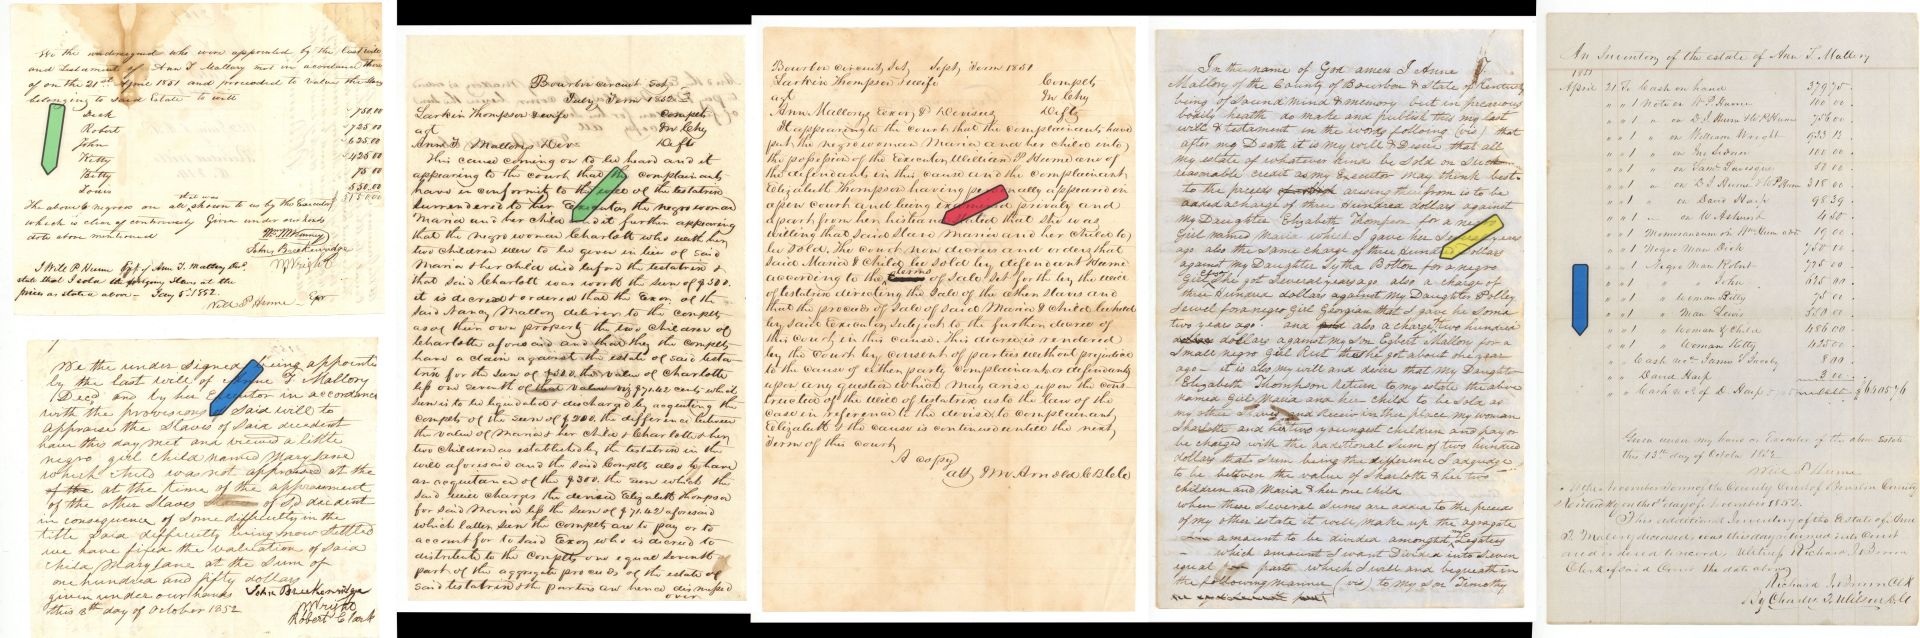 We the undersigned who were appointed by the last will
and testament of Ann T. Mallory met in acordance there
of on the 21st April 1851 and proceeded to value the slaves
belonging to said Estate to wit
Dick 750.00
Robert 725 00
John 625.00
Kitty 425 00
Betty 75 00
Louis 550.00
The above 6 negroes on all that was shown to us by the Executor
which is clear of controversy Given under our hands
date above mentioned
Wm. McKinney
John Breckenridge
W Wright
I Will P Hume Exr of Ann T. Mallory Dec
state that I sold the forgoing slaves at the
prices as stated above - Jany 5th 1852.
Will P. Hume Exr
We the under signed being appointed
by the last will of Anne T Mallory
Decd and by her Executor in accordance
with the provisions of said will to
appraise the Slaves of said decedent
have this day met and viewed a little
negro girl child named Mary Jane
which child was not appraised at the
at the time of the appraisment
of the other Slaves of sd decedent
in consequence of some difficulty in the
title said difficulty being now settled
we have fixed the valuation of said
child Mary Jane at the sum of
one hundred and fifty dollars
given under our hands John Breckenridge
this 8th day of October 1852 W Wright
Robert Clark
Bourbon circuit Sct
July Term 1852
Larkin Thompson & wife Complts
agt In Chy
Ann T. Mallorys Devs Defts
This cause coming on to be heard and it
appearing to the court that the complainants
have in conformity to the of the testatrix
surrendered to her Executor the negro woman
Maria and her child and it further appearing
that the negro woman Charlott who with her
two children were to be given in lieu of said
Maria & her child died before the testatrix &
that said Charlott was worth the sum of $500.
it is decreed & ordered that the Exor of the
said Nancy Mallory deliver to the complts
as of their own property the two children of
Charlotte aforesaid and that they the complts
have a claim against the estate of said testa-
trix for the sum of $500. the value of Charlotte
less one seventh of that value viz $71.42 cents which
sum is to be liquidated & discharged by acquitting the
complts of the sum of $200. the difference between
the value of Maria & her child & Charlotte & her
two children as established by the testatrix in the
will aforesaid and the said Complts also to have
an acquitance of the $300. the sum which the
said will charges the devisee Elizabeth Thompson
for said Maria less the sum of $71.42 aforesaid
which latter sum the complts are to pay or to
account for to said Exor who is decreed to
distribute to the complts one equal seventh
part of the aggregate proceeds of the estate of
said testatrix & the parties are hence dismissed
over
Bourbon circuit Sct. Sept. Term 1851
Larkin Thompson & wife Complts
agt In Chy
Ann Mallorys Exor & Devisees Defts
It appearing to the court that the complainants have
put the negro woman Maria and her child into
the possession of the Executor William P Hume one of
the defendants in this cause and the complainant
Elizabeth Thompson having personally appeared in
open court and being examined privily and
apart from her husband stated that she was
willing that said slave Maria and her child to
be sold. The court now decrees and orders that
said Maria & Child be sold by defendant Hume
according to the terms of sale set forth by the will
of testatrix directing the sale of the other slaves and
that the proceeds of sale of said Maria & Child be held
by said Executor subject to the further decree of
this court in this cause. This decree is rendered
by the Court by consent of parties without prejudice
to the cause of either party Complainant or defendants
upon any question which may arise upon the cons
truction of the will of testatrix as to the law of the
case in reference to the devise to complainant
Elizabeth & the cause is continued untill the next
Term of this court
A copy
att J M Arnold C B C C
In the name of God amen I Anne T
Mallory of the County of Bourbon & State of Kentucky
being of Sound mind & memory but in precarious
bodily health do make and publish this my last
will & testament in the words following (vis) that
after my Death it is my will & Desire that all
my estate of whatever kind be Sold on Such
reasonable credit as my Executor may think best
to the preceds arising therefrom is to be
added a charge of three Hundred dollars against
my Daughter Elizabeth Thompson for a negro
Girl named Maria which I gave her Several years
ago also the same charge of three hundred dollars
against my Daughter Sytha Botton for a negro
Girl She got Several years ago also a charge of
three Hundred dollars against my Daughter Polley
Jewel for a negro Girl Georgian that I gave he Some
two years ago and also a charge two hundred
dollars against my Son Egbert Mallory for a
Small negro Girl Ruth that he got about one year
ago - it is also my will and desire that my Daughter
Elizabeth Thompson return to my estate the above
named Girl Maria and her child to be sold as
my other Slaves and receive in there place my woman
Sharlotte and her two youngest children and pay or
be charged with the additional Sum of two Hundred
dollars that Sum being the difference I adjudge
to be between the value of Sharlotte & her two
children and Maria & her one child
when these several Sums are added to the preceds
of my other estate it will make up the agragate
amount to be divided amongst Legatees
- which amount I want Divided into Seven
equal parts which I will and bequeath in
the following manner (vis) to my Son Timothy
An Inventory of the estate of Ann T. Mallory
1851
April 21 To Cash on hand 379 75
" " 1 Note on W P Hume 100 00
" " 1 " on D. J Hume & W P Hume 756 00
" " 1 " on William Wright 633 13
" " 1 " on 100 00
" " 1 " on 50 00
" " 1 " on D. J Hume & W P Hume 318 00
" " 1 " on David Harp 98 39
" " 1 " on W Ashurst 4 50
" " 1 Memorandum on Wm Hume 19 00
" " 1 Negro Man Dick 750 00
" " 1 Negro Man Robert 725 00
" " 1 " " John 625 00
" " 1 " Woman Betty 75 00
" " 1 " Man Lewis 550 00
" " 1 " Woman & Child 486 00
" " 1 " Woman Kitty 425 00
" " Cash 8 00
" " David Harp 3 00
" " Cash of D Harp
Given under my hand as Executor of the above Estate
this 13th day of October 1852
Will P Hume
At the November County Court of Bourbon County
day of November 1852.
This additional Inventory of the Estate of Ann
T. Mallory deceased, was this day returned into Court
and ordered to record. Witness Richard J Brown
Clerk of said Court the date above
Richard J Brown Clk
By Charles T. Wilson D.C